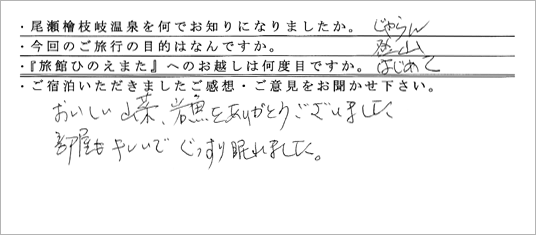 ・尾瀬檜枝岐温泉を何でお知りになりましたか。 じゃらん
・今回のご旅行の目的はなんですか。 登山
・『旅館ひのえまた』へのお越しは何度目ですか。 はじめて
・ご宿泊いただきましたご感想・ご意見をお聞かせ下さい。
おいしい山菜、岩魚をありがとうございました
部屋もキレイでぐっすり眠れました。